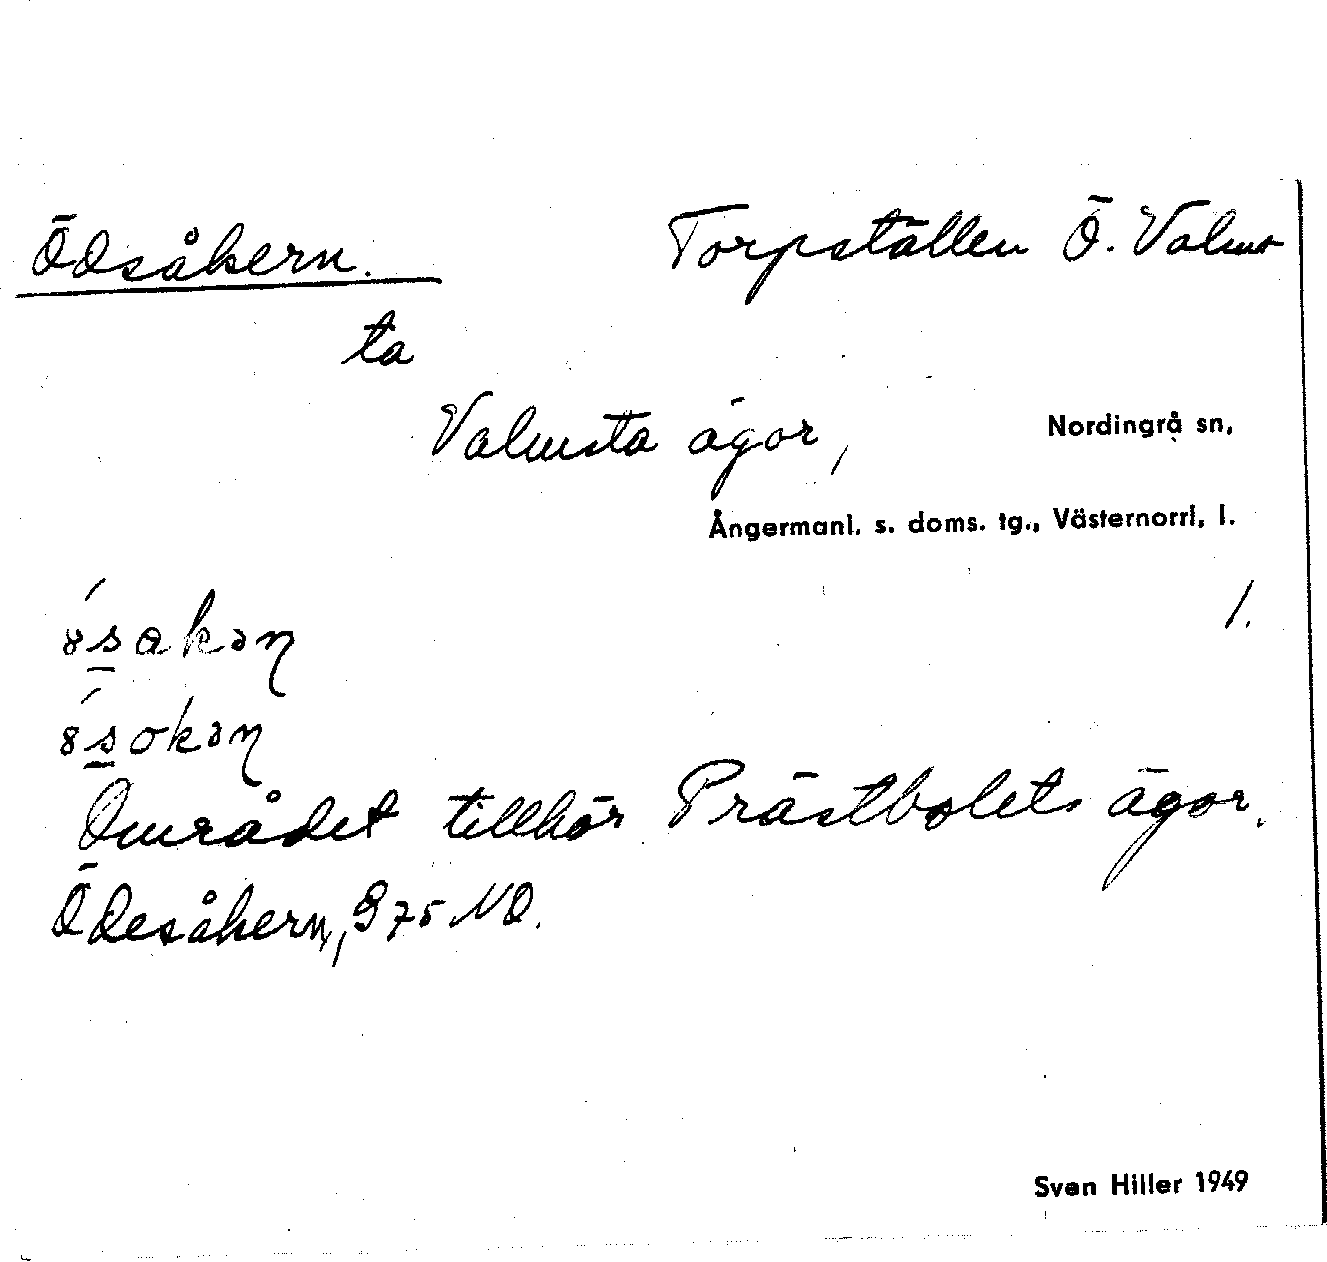 Ödsåkern. Torpställen Ö. Valms
ta
Valmsta ägor, Nordingrå sn,
Ångermanl. s. doms. tg., Västernorrl. l.
1.
Området tillhör Prästbolets ägor.
Ödesåkern, 975 NO.
Sven Hiller 1949